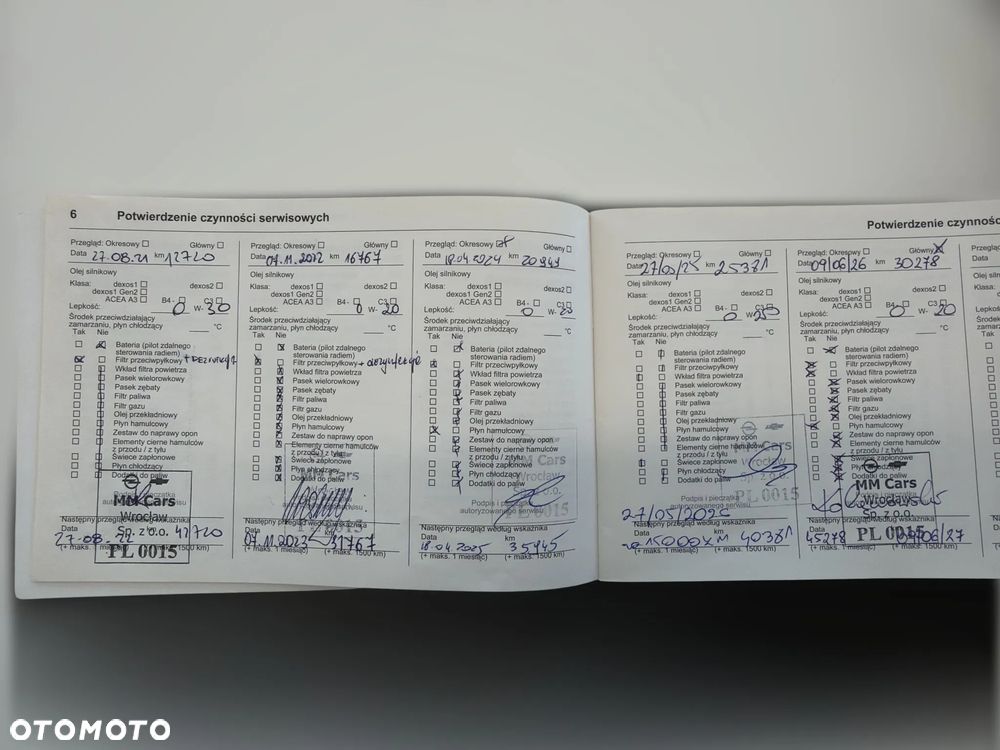 6 Potwierdzenie czynności serwisowych
Przegląd: Okresowy Główny
Data 27.08.21 km 12720
Olej silnikowy
Klasa: dexos1 dexos2
dexos1 Gen2
ACEA A3 B4 - C3
Lepkość: 0 W- 30
Środek przeciwdziałający
zamarzaniu, płyn chłodzący °C
Tak Nie
Bateria (pilot zdalnego
sterowania radiem)
Filtr przeciwpyłkowy
Wkład filtra powietrza
Pasek wielorowkowy
Pasek zębaty
Filtr paliwa
Filtr gazu
Olej przekładniowy
Płyn hamulcowy
Zestaw do naprawy opon
Elementy cierne hamulców
z przodu / z tyłu
Świece zapłonowe
Płyn chłodzący
Dodatki do paliw
Podpis i pieczątka
autoryzowanego serwisu
MM Cars
Wrocław
Sp. z o.o.
PL 0015
Następny przegląd według wskaźnika
Data km
(+ maks. 1 miesiąc) (+ maks. 1500 km)
Przegląd: Okresowy Główny
Data 07.11.2022 km 16767
Olej silnikowy
Klasa: dexos1 dexos2
dexos1 Gen2
ACEA A3 B4 - C3
Lepkość: 0 W- 20
Środek przeciwdziałający
zamarzaniu, płyn chłodzący °C
Tak Nie
Bateria (pilot zdalnego
sterowania radiem)
Filtr przeciwpyłkowy
Wkład filtra powietrza
Pasek wielorowkowy
Pasek zębaty
Filtr paliwa
Filtr gazu
Olej przekładniowy
Płyn hamulcowy
Zestaw do naprawy opon
Elementy cierne hamulców
z przodu / z tyłu
Świece zapłonowe
Płyn chłodzący
Dodatki do paliw
Następny przegląd według wskaźnika
Data km
07.11.2023 31767
(+ maks. 1 miesiąc) (+ maks. 1500 km)
Przegląd: Okresowy Główny
Data 18.04.2024 km 20945
Olej silnikowy
Klasa: dexos1 dexos2
dexos1 Gen2
ACEA A3 B4 - C3
Lepkość: 0 W-
Środek przeciwdziałający
zamarzaniu, płyn chłodzący °C
Tak Nie
Bateria (pilot zdalnego
sterowania radiem)
Filtr przeciwpyłkowy
Wkład filtra powietrza
Pasek wielorowkowy
Pasek zębaty
Filtr paliwa
Filtr gazu
Olej przekładniowy
Płyn hamulcowy
Zestaw do naprawy opon
Elementy cierne hamulców
z przodu / z tyłu
Świece zapłonowe
Płyn chłodzący
Dodatki do paliw
MM Cars
Wrocław
Podpis i pieczątka
autoryzowanego serwisu
PL 0015
Następny przegląd według wskaźnika
Data km
18.04.2025 35945
(+ maks. 1 miesiąc) (+ maks. 1500 km)
Potwierdzenie czynności
Przegląd: Okresowy Główny
Data 27/05/25 km 25381
Olej silnikowy
Klasa: dexos1 dexos2
dexos1 Gen2
ACEA A3 B4 - C3
Lepkość: 0 W-
Środek przeciwdziałający
zamarzaniu, płyn chłodzący °C
Tak Nie
Bateria (pilot zdalnego
sterowania radiem)
Filtr przeciwpyłkowy
Wkład filtra powietrza
Pasek wielorowkowy
Pasek zębaty
Filtr paliwa
Filtr gazu
Olej przekładniowy
Płyn hamulcowy
Zestaw do naprawy opon
Elementy cierne hamulców
z przodu / z tyłu
Świece zapłonowe
Płyn chłodzący
Dodatki do paliw
MM Cars
Wrocław
Sp. z o.o.
PL 0015
Podpis i pieczątka
autoryzowanego serwisu
27/05/2026
Następny przegląd według wskaźnika
Data km
15000KM 40381
(+ maks. 1 miesiąc) (+ maks. 1500 km)
Przegląd: Okresowy Główny
Data 09/06/26 km 30278
Olej silnikowy
Klasa: dexos1 dexos2
dexos1 Gen2
ACEA A3 B4 - C3
Lepkość: 0 W- 20
Środek przeciwdziałający
zamarzaniu, płyn chłodzący °C
Tak Nie
Bateria (pilot zdalnego
sterowania radiem)
Filtr przeciwpyłkowy
Wkład filtra powietrza
Pasek wielorowkowy
Pasek zębaty
Filtr paliwa
Filtr gazu
Olej przekładniowy
Płyn hamulcowy
Zestaw do naprawy opon
Elementy cierne hamulców
z przodu / z tyłu
Świece zapłonowe
Płyn chłodzący
Dodatki do paliw
MM Cars
Wrocław
Sp. z o.o.
PL 0015
Następny przegląd według wskaźnika
Data
45278 09/06/27
(+ maks. 1 miesiąc) (+ maks. 1500 km)
OTOMOTO